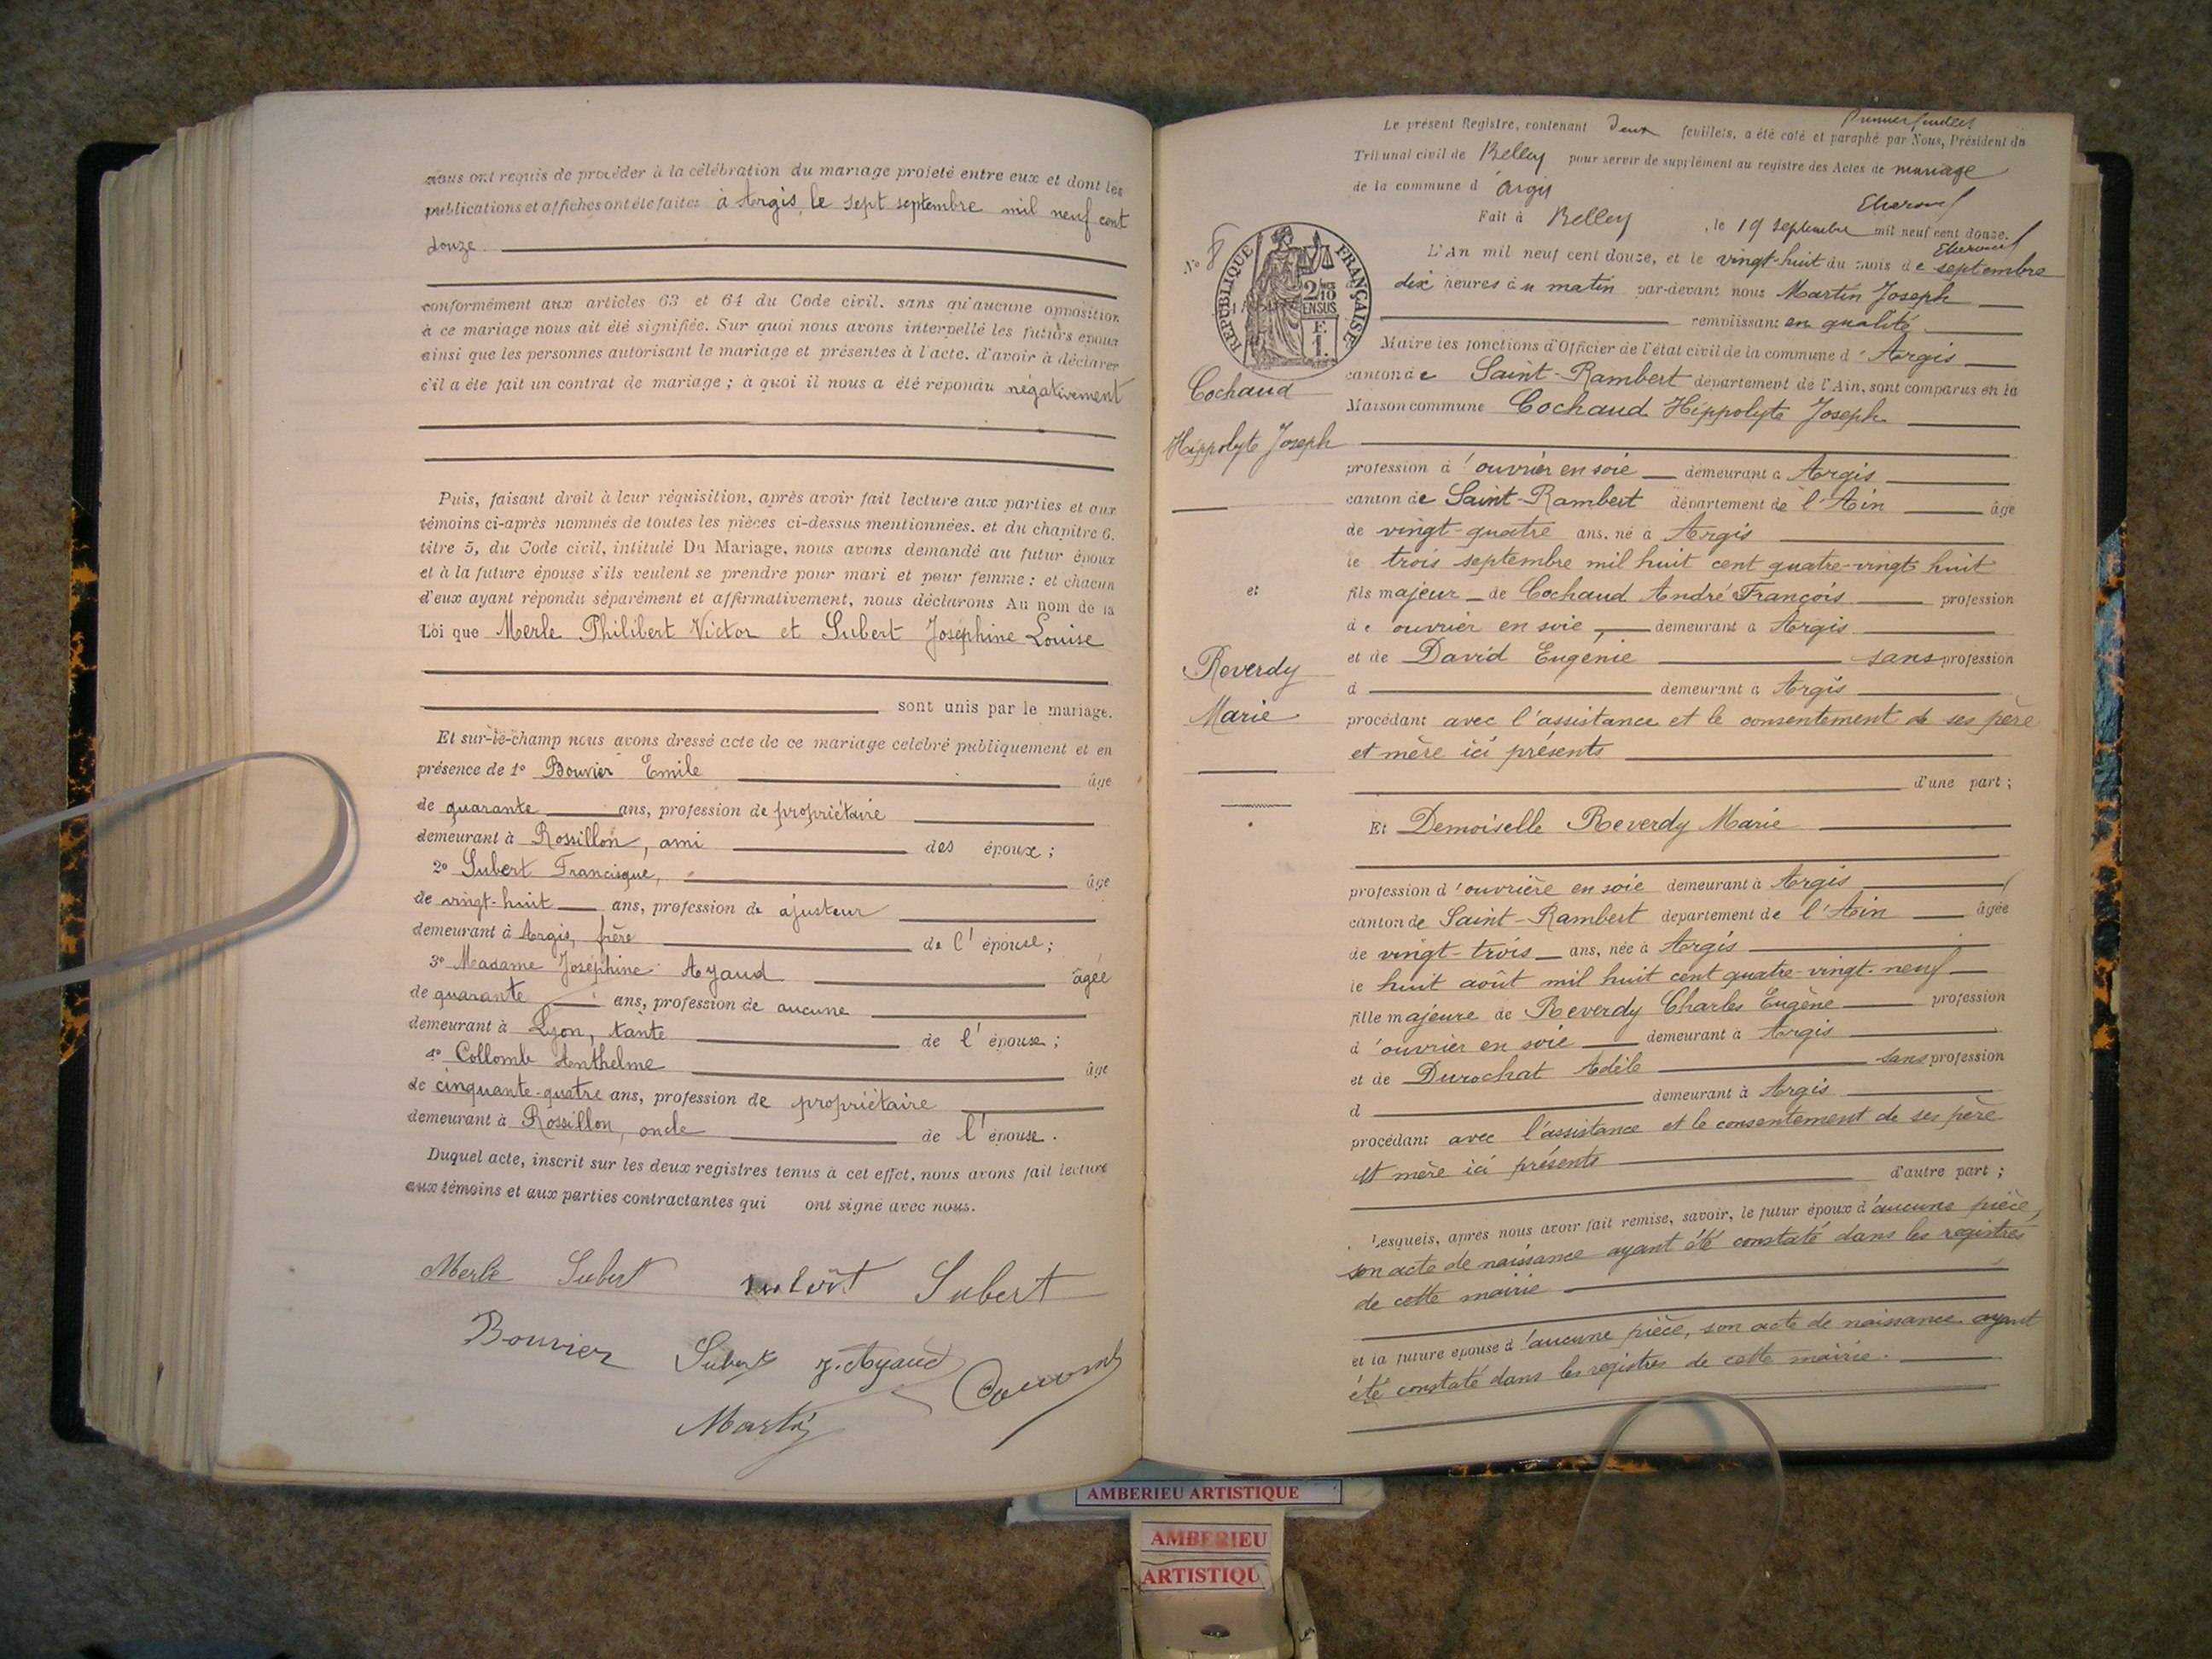 nous ont requis de procéder à la célébration du mariage projeté entre eux et dont les
publications et affiches ont été faites à Argis, le sept septembre mil neuf cent
douze
conformément aux articles 63 et 64 du Code civil, sans qu'aucune opposition
à ce mariage nous ait été signifiée. Sur quoi nous avons interpellé les futurs époux
ainsi que les personnes autorisant le mariage et présentes à l'acte, d'avoir à déclarer
s'il a été fait un contrat de mariage ; à quoi il nous a été répondu négativement
Puis, faisant droit à leur réquisition, après avoir fait lecture aux parties et aux
témoins ci-après nommés de toutes les pièces ci-dessus mentionnées, et du chapitre 6,
titre 5, du Code civil, intitulé Du Mariage, nous avons demandé au futur époux
et à la future épouse s'ils veulent se prendre pour mari et pour femme : et chacun
d'eux ayant répondu séparément et affirmativement, nous déclarons Au nom de la
Loi que Merle Philibert Victor et Subert Joséphine Louise
sont unis par le mariage.
Et sur-le-champ nous avons dressé acte de ce mariage célébré publiquement et en
présence de 1º Bouvier Emile âgé
de quarante ans, profession de propriétaire
demeurant à Rossillon, ami des époux ;
2º Subert Francisque, âgé
de vingt-huit ans, profession de ajusteur
demeurant à Argis, frère de l'épouse ;
3º Madame Joséphine Ayaud âgée
de quarante ans, profession de aucune
demeurant à Lyon, tante de l'épouse ;
4º Collomb Anthelme âgé
de cinquante-quatre ans, profession de propriétaire
demeurant à Rossillon, oncle de l'épouse.
Duquel acte, inscrit sur les deux registres tenus à cet effet, nous avons fait lecture
aux témoins et aux parties contractantes qui ont signé avec nous.
Merle Subert Subert
Bouvier Subert J. Ayaud
Martin
Premier feuillet
Le présent Registre, contenant Deux feuillets, a été coté et paraphé par Nous, Président du
Tribunal civil de Belley pour servir de supplément au registre des Actes de mariage
de la commune d'Argis
Fait à Belley, le 19 septembre mil neuf cent douze.
Nº 8
RÉPUBLIQUE FRANÇAISE
2/10 EN SUS
F.
1.
L'An mil neuf cent douze, et le vingt-huit du mois de septembre
à dix heures du matin par-devant nous Martin Joseph
remplissant en qualité
Maire les fonctions d'Officier de l'état civil de la commune d'Argis
canton de Saint-Rambert département de l'Ain, sont comparus en la
Maison commune Cochaud Hippolyte Joseph
Cochaud
Hippolyte Joseph
et
Reverdy
Marie
profession d'ouvrier en soie demeurant à Argis
canton de Saint-Rambert département de l'Ain âgé
de vingt-quatre ans, né à Argis
le trois septembre mil huit cent quatre-vingt huit
fils majeur de Cochaud André François profession
de ouvrier en soie, demeurant à Argis
et de David Eugénie sans profession
d demeurant à Argis
procédant avec l'assistance et le consentement de ses père
et mère ici présents
d'une part ;
Et Demoiselle Reverdy Marie
profession d'ouvrière en soie demeurant à Argis
canton de Saint-Rambert département de l'Ain âgée
de vingt-trois ans, née à Argis
le huit août mil huit cent quatre-vingt-neuf
fille majeure de Reverdy Charles Eugène profession
d'ouvrier en soie demeurant à Argis
et de Durochat Adèle sans profession
d demeurant à Argis
procédant avec l'assistance et le consentement de ses père
et mère ici présents
d'autre part ;
Lesquels, après nous avoir fait remise, savoir, le futur époux d'aucune pièce,
son acte de naissance ayant été constaté dans les registres
de cette mairie
et la future épouse d'aucune pièce, son acte de naissance ayant
été constaté dans les registres de cette mairie.
AMBERIEU ARTISTIQUE
AMBERIEU
ARTISTIQU